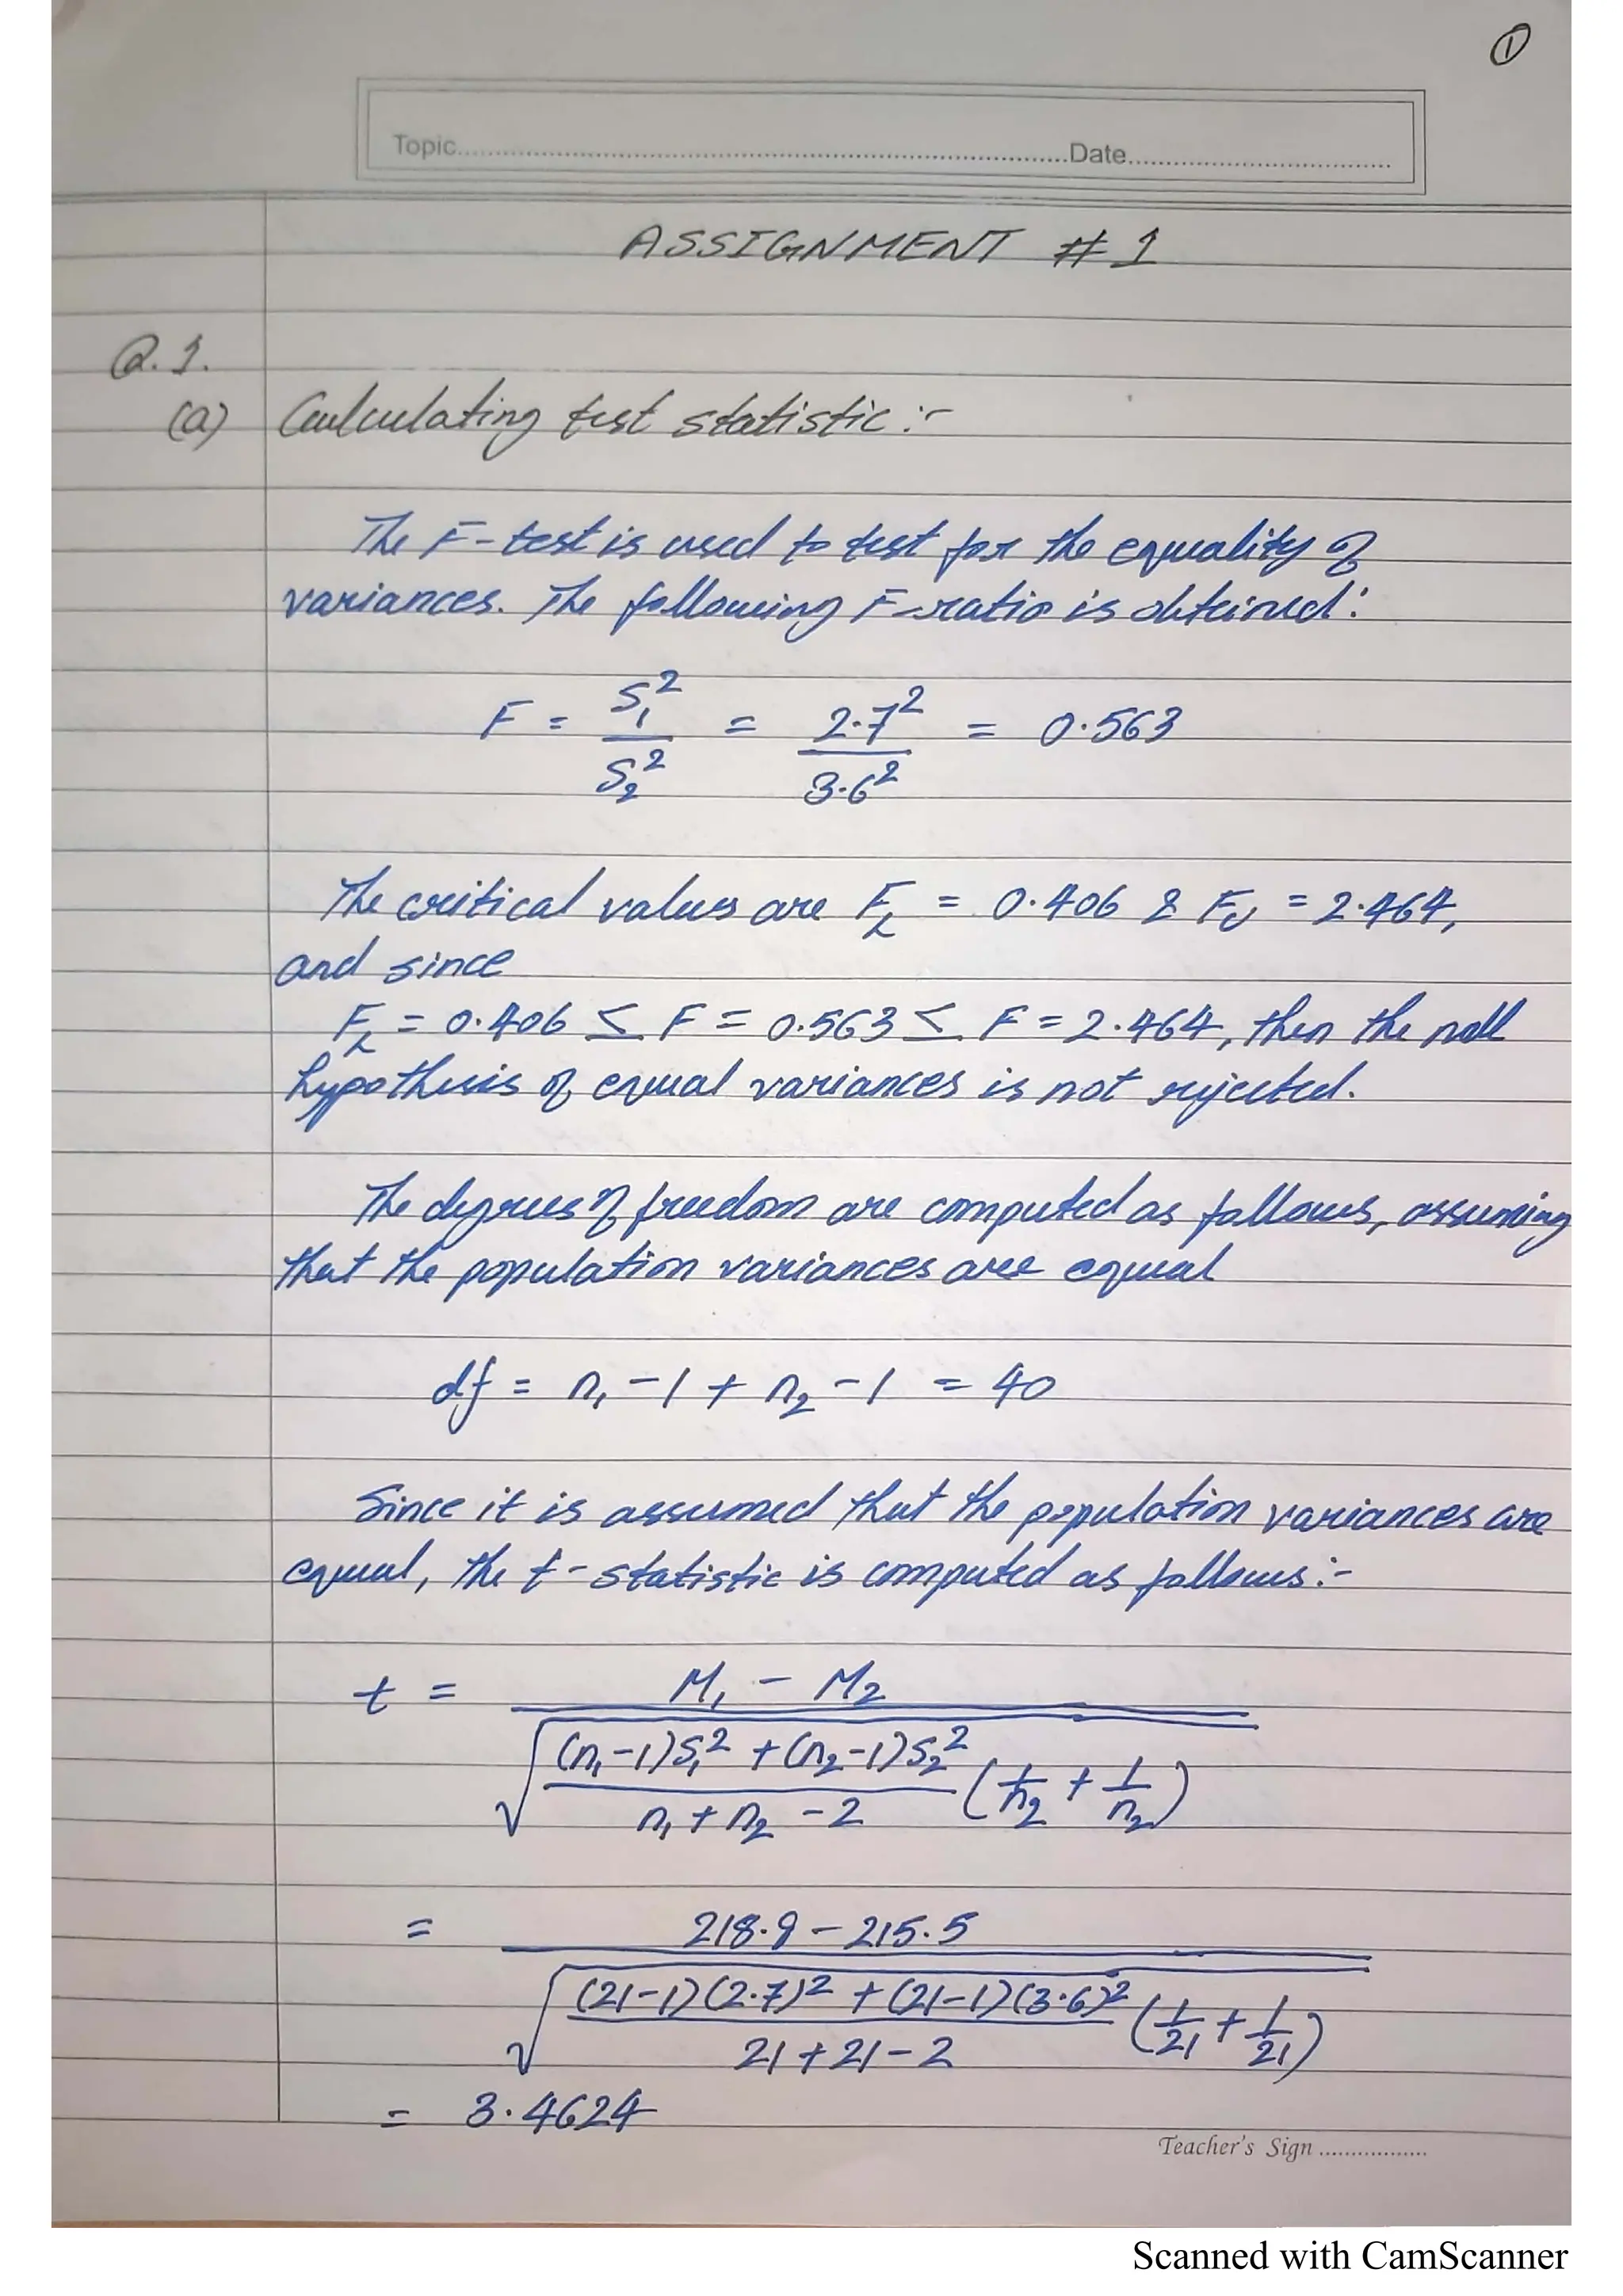 ①
Topic.....................Date.....................
ASSIGNMENT # 1
Q.1.
(a) Calculating test statistic :-
The F-test is used to test for the equality of
variances. The following F-ratio is obtained:
F = S₁² / S₂² = 2.7² / 3.6² = 0.563
The critical values are F_L = 0.406 & F_U = 2.464,
and since
F_L = 0.406 ≤ F = 0.563 ≤ F = 2.464, then the null
hypothesis of equal variances is not rejected.
The degrees of freedom are computed as follows, assuming
that the population variances are equal
df = n₁ - 1 + n₂ - 1 = 40
Since it is assumed that the population variances are
equal, the t-statistic is computed as follows:-
t = (M₁ - M₂) / √( ((n₁-1)S₁² + (n₂-1)S₂²) / (n₁ + n₂ - 2) (1/n₂ + 1/n₂) )
= (218.9 - 215.5) / √( ((21-1)(2.7)² + (21-1)(3.6)²) / (21 + 21 - 2) (1/21 + 1/21) )
= 3.4624
Teacher's Sign ..................
Scanned with CamScanner